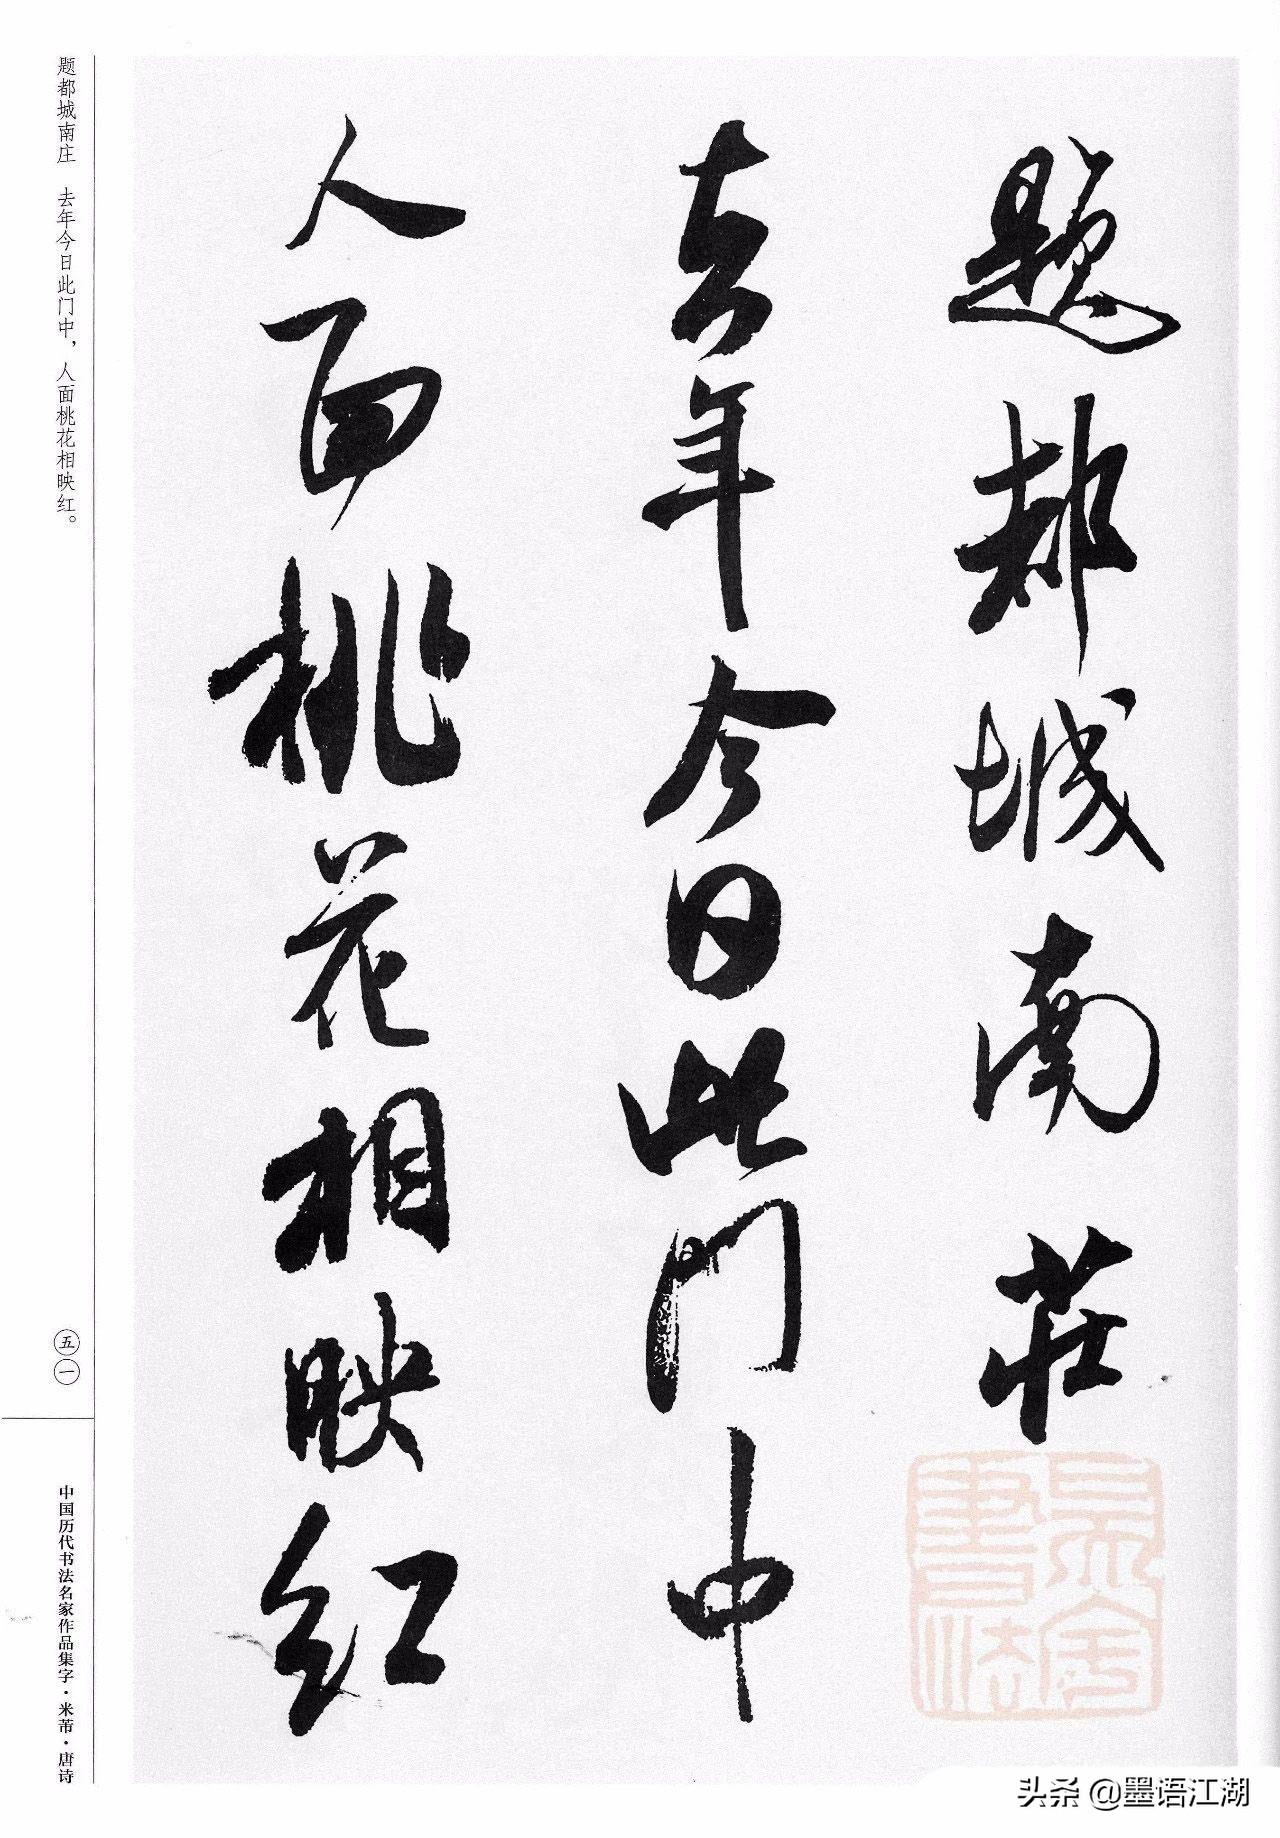 題都城南莊
去年今日此門中
人面桃花相映红
题都城南庄 去年今日此门中，人面桃花相映红。
五一
中国历代书法名家作品集字·米芾·唐诗
头条 @墨语江湖